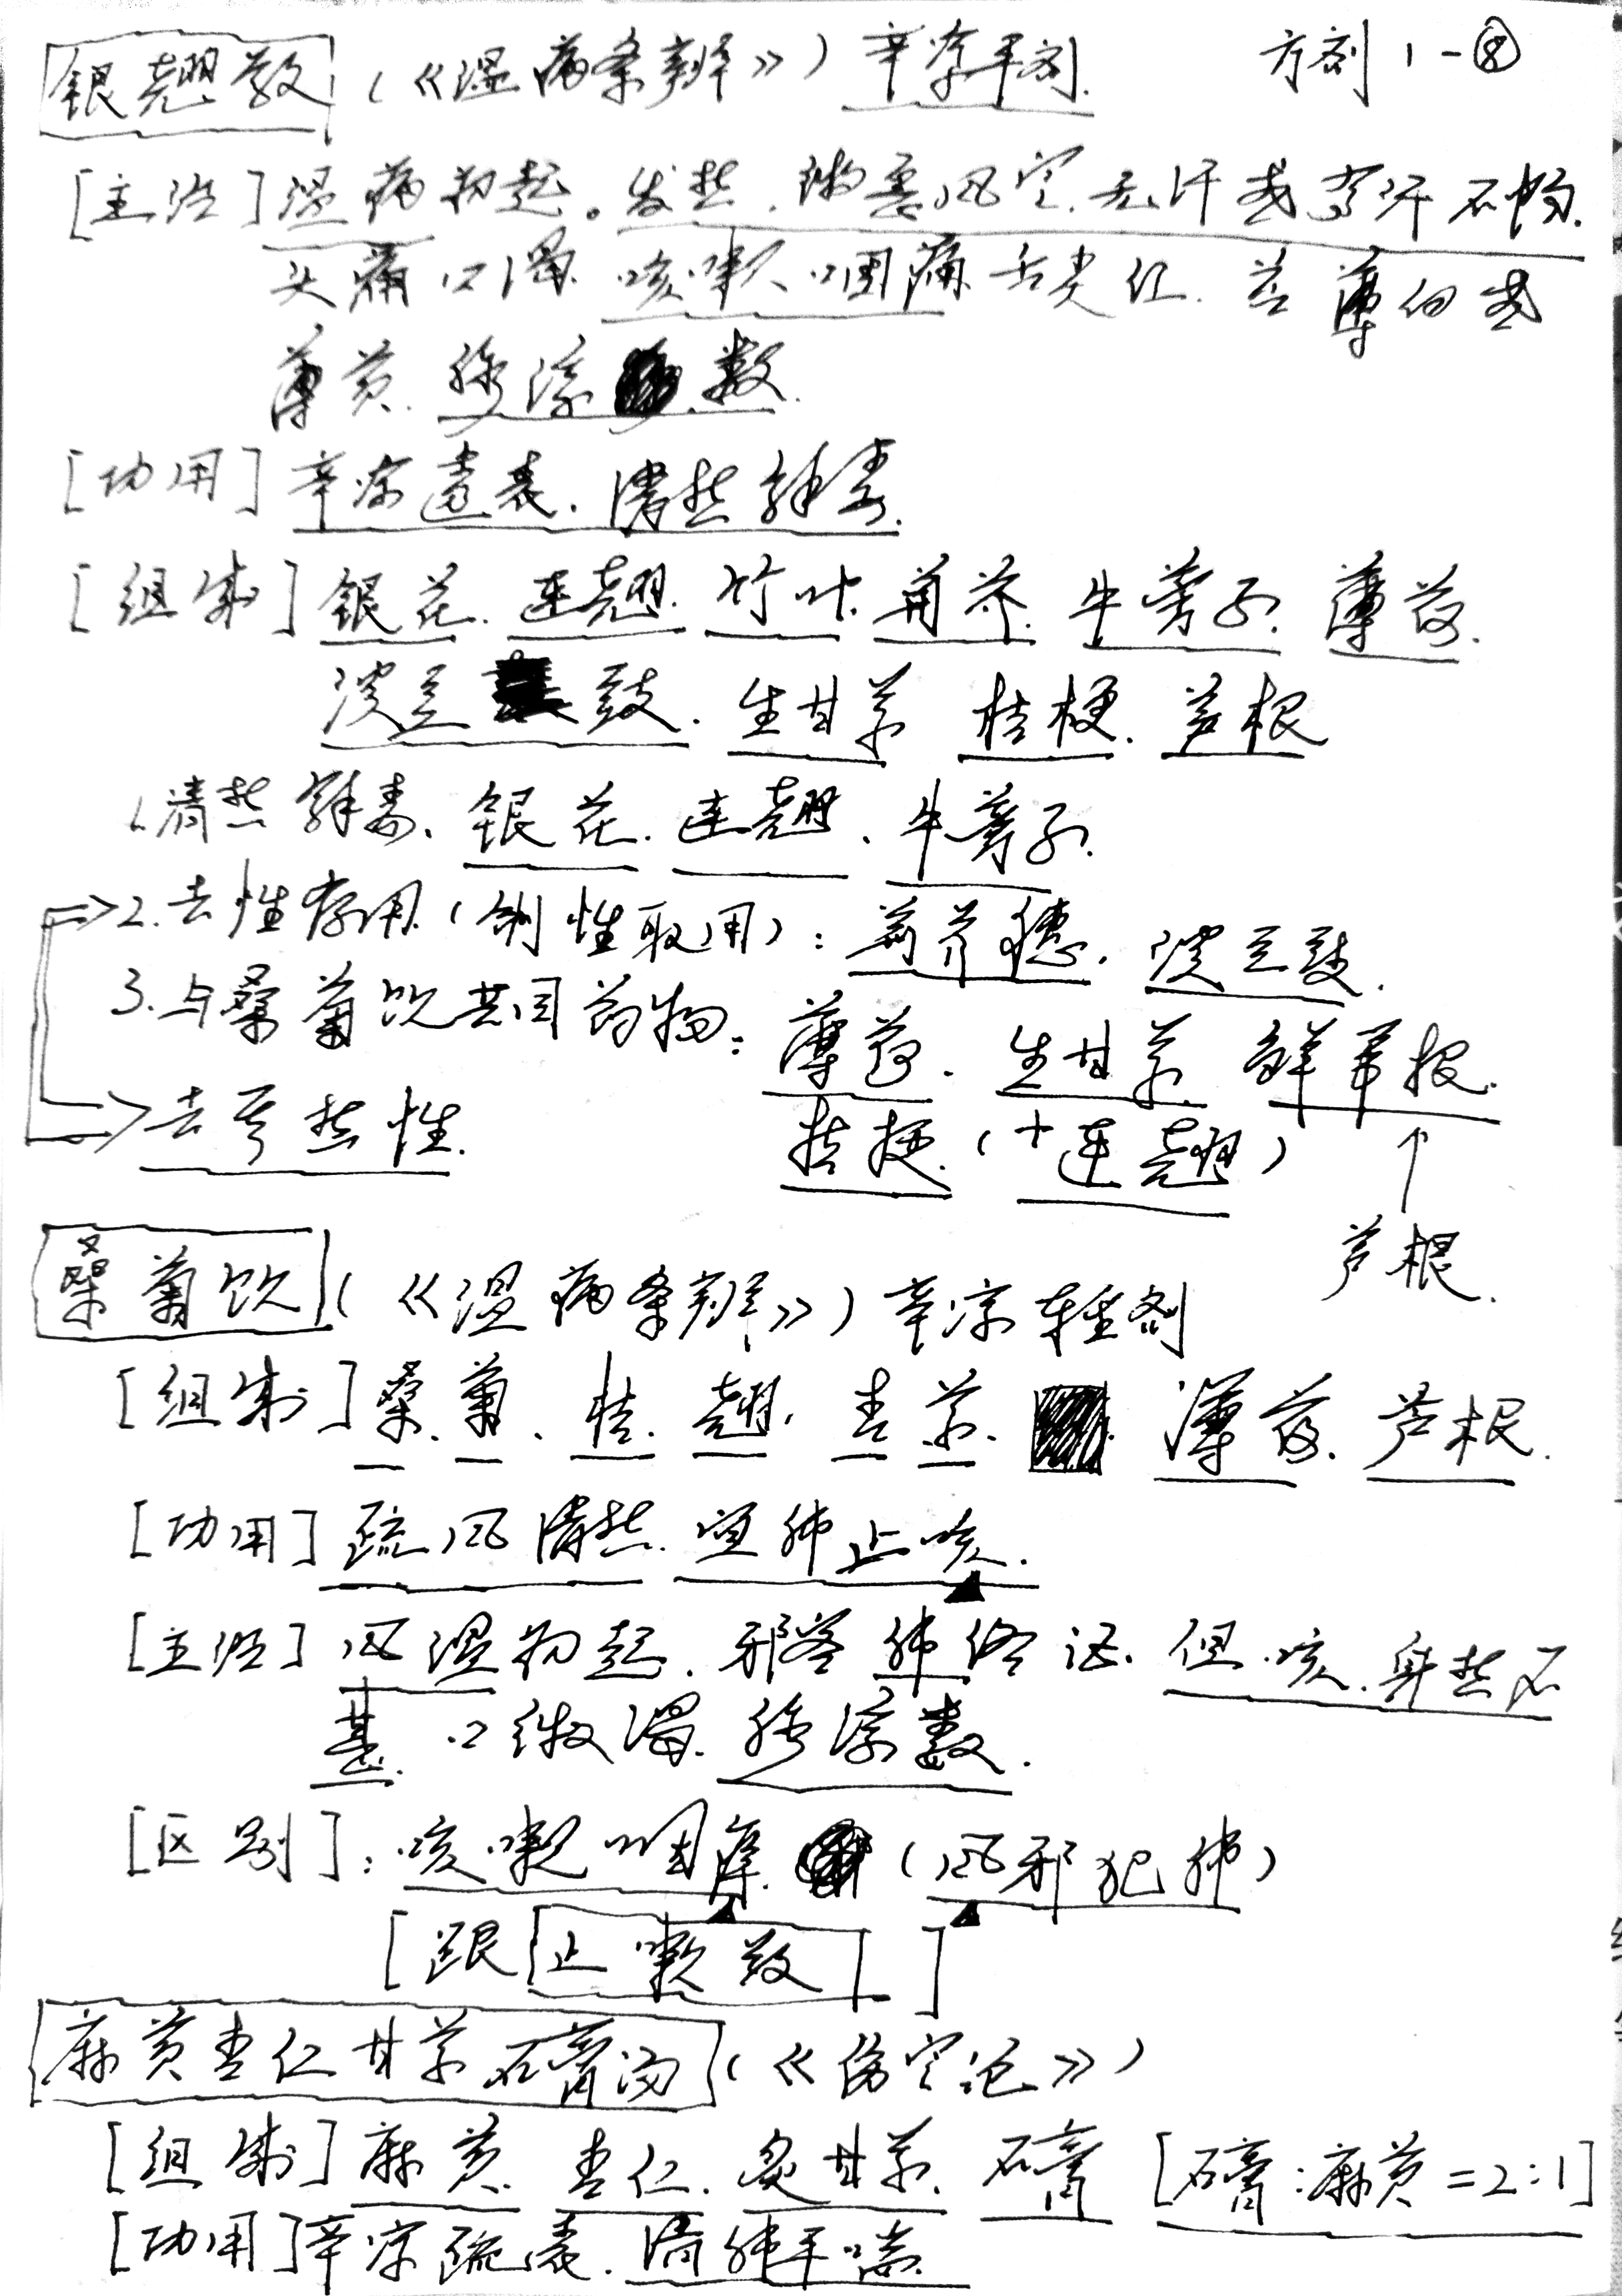 银翘散（《温病条辨》）辛凉平剂. 方剂 1-⑧
[主治]温病初起。发热.微恶风寒.无汗或有汗不畅.
头痛口渴.咳嗽咽痛.舌尖红.苔薄白或
薄黄.脉浮数.
[功用]辛凉透表.清热解毒.
[组成]银花.连翘.竹叶.荆芥.牛蒡子.薄荷.
淡豆豉.生甘草 桔梗.芦根
1.清热解毒、银花.连翘.牛蒡子.
2.去性存用.(制性取用)：荆芥穗.淡豆豉.
3.与桑菊饮共同药物：薄荷.生甘草.鲜苇根.
去辛热性. 桔梗.(+连翘) ↑
芦根.
桑菊饮（《温病条辨》）辛凉轻剂
[组成]桑.菊.桔.翘.杏.草.薄荷.芦根.
[功用]疏风清热.宣肺止咳.
[主治]风温初起.邪客肺络证.但咳.身热不
甚.口微渴.脉浮数.
[区别]：咳嗽咽痒(风邪犯肺)
[跟止嗽散]
麻黄杏仁甘草石膏汤（《伤寒论》）
[组成]麻黄.杏仁.炙甘草.石膏 [石膏：麻黄=2:1]
[功用]辛凉疏表.清肺平喘